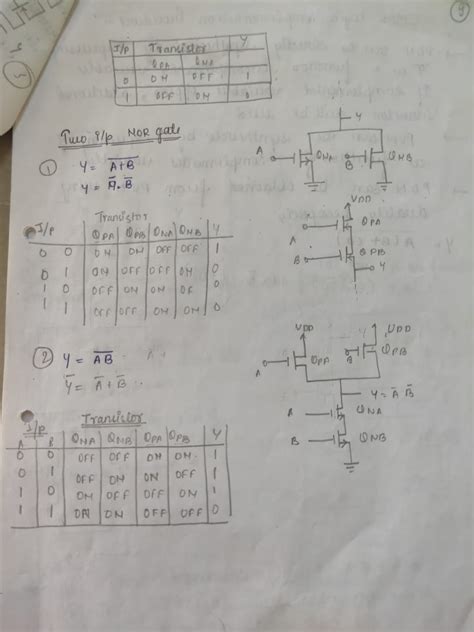 I/p Transistor Y
QPA QNA
0 ON OFF 1
1 OFF ON 0
Two I/p NOR gate
Y
A QNA B QNB
① Y = A̅+̅B̅
Y = A̅ . B̅
VDD
A QPA
B QPB
Y
I/p Transistor
QPA QPB QNA QNB Y
0 0 ON ON OFF OFF 1
0 1 ON OFF OFF ON 0
1 0 OFF ON ON OF 0
1 1 OFF OFF ON ON 0
② Y = A̅B̅
Y̅ = A̅ + B̅
VDD VDD
A QPA B QPB
Y = A̅ B̅
A QNA
B QNB
I/p Transistor
A B QNA QNB QPA QPB Y
0 0 OFF OFF ON ON 1
0 1 OFF ON ON OFF 1
1 0 ON OFF OFF ON 1
1 1 ON ON OFF OFF 0